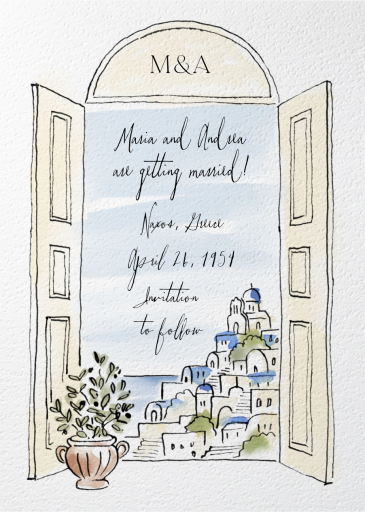 M&A
Maria and Andrea
are getting married!
Naxos, Greece
April 26, 1954
Invitation
to follow